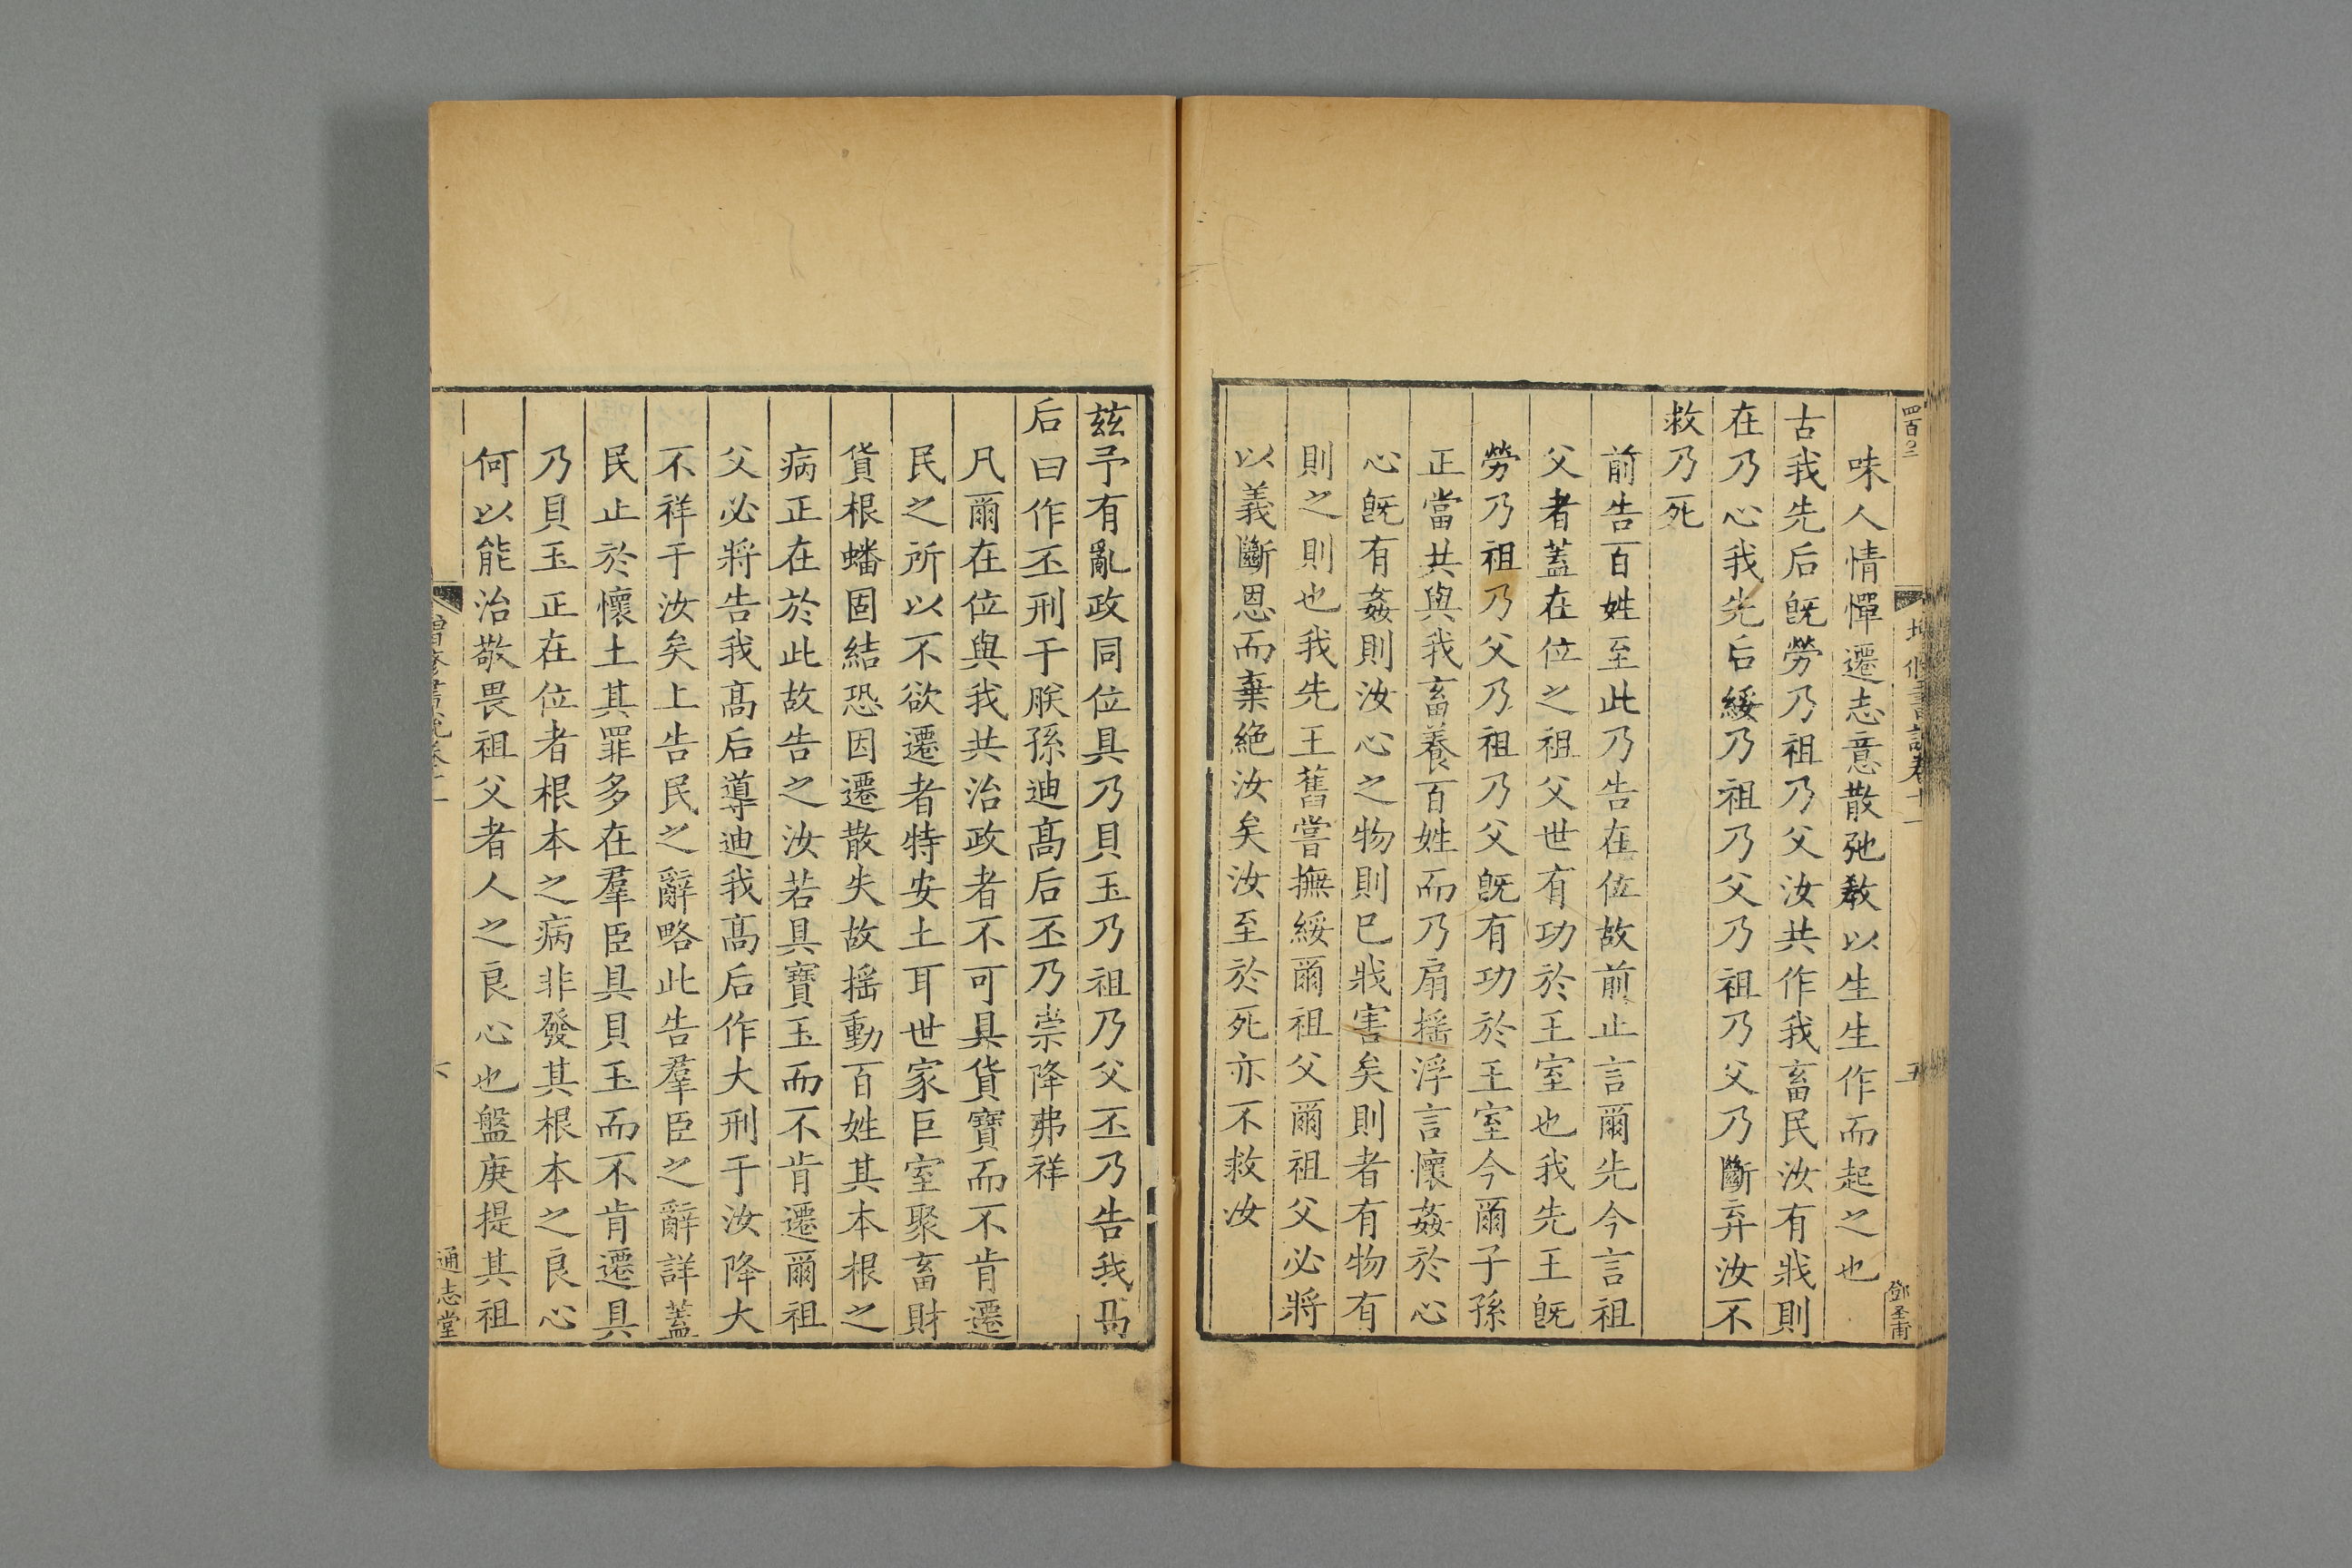 四百〇三
增修書說卷十一
五
鄧圣甫
味人情憚遷志意散弛敎以生生作而起之也
古我先后旣勞乃祖乃父汝共作我畜民汝有戕則
在乃心我先后綏乃祖乃父乃祖乃父乃斷弃汝不
救乃死
前告百姓至此乃告在位故前止言爾先今言祖
父者蓋在位之祖父世有功於王室也我先王旣
勞乃祖乃父乃祖乃父旣有功於王室今爾子孫
正當共與我畜養百姓而乃扇摇浮言懷姦於心
心旣有姦則汝心之物則巳戕害矣則者有物有
則之則也我先王舊嘗撫綏爾祖父爾祖父必將
以義斷恩而棄絶汝矣汝至於死亦不救汝
兹予有亂政同位具乃貝玉乃祖乃父丕乃告我高
后曰作丕刑于朕孫迪髙后丕乃崇降弗祥
凡爾在位與我共治政者不可具貨寶而不肯遷
民之所以不欲遷者特安土耳世家巨室聚畜財
貨根蟠固結恐因遷散失故摇動百姓其本根之
病正在於此故告之汝若具寶玉而不肯遷爾祖
父必將告我髙后導迪我髙后作大刑于汝降大
不祥于汝矣上告民之辭略此告羣臣之辭詳蓋
民止於懷土其罪多在羣臣具貝玉而不肯遷具
乃貝玉正在位者根本之病非發其根本之良心
何以能治敬畏祖父者人之良心也盤庚提其祖
增修書說卷十一
通志堂